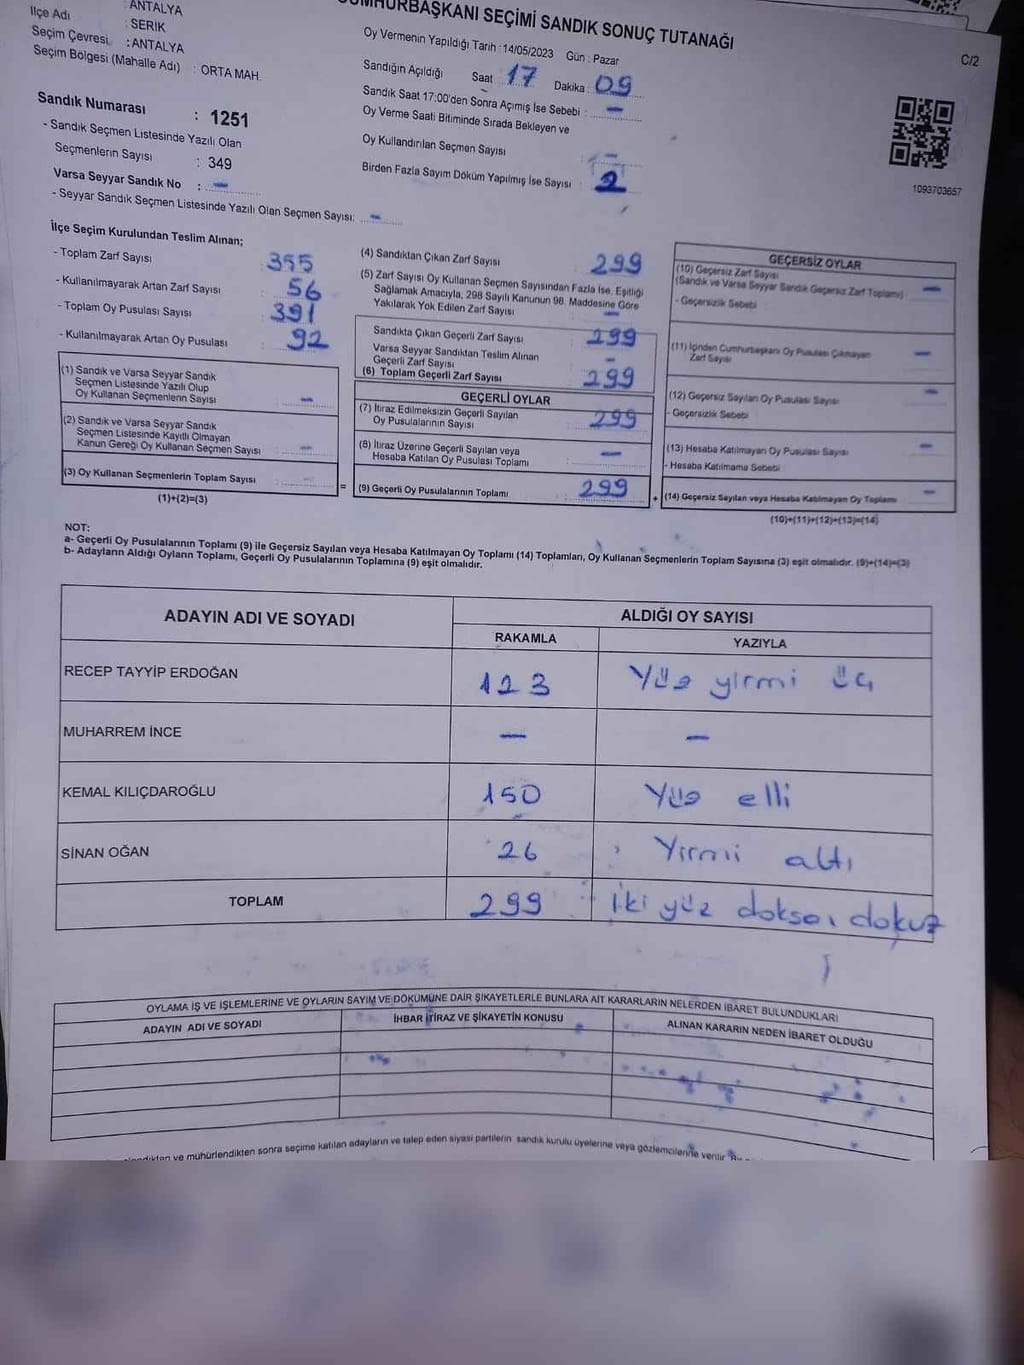 ANTALYA
İlçe Adı : SERİK
Seçim Çevresi : ANTALYA
Seçim Bölgesi (Mahalle Adı) : ORTA MAH.
CUMHURBAŞKANI SEÇİMİ SANDIK SONUÇ TUTANAĞI
C/2
Oy Vermenin Yapıldığı Tarih : 14/05/2023 Gün : Pazar
Sandığın Açıldığı Saat 17 Dakika 09
Sandık Saat 17:00'den Sonra Açımış İse Sebebi : -
Oy Verme Saati Bitiminde Sırada Bekleyen ve
Oy Kullandırılan Seçmen Sayısı : -
Birden Fazla Sayım Döküm Yapılmış İse Sayısı : 2
1093703657
Sandık Numarası : 1251
- Sandık Seçmen Listesinde Yazılı Olan
Seçmenlerin Sayısı : 349
Varsa Seyyar Sandık No : -
- Seyyar Sandık Seçmen Listesinde Yazılı Olan Seçmen Sayısı: -
İlçe Seçim Kurulundan Teslim Alınan;
- Toplam Zarf Sayısı : 355
- Kullanılmayarak Artan Zarf Sayısı : 56
- Toplam Oy Pusulası Sayısı : 391
- Kullanılmayarak Artan Oy Pusulası : 92
(1) Sandık ve Varsa Seyyar Sandık
Seçmen Listesinde Yazılı Olup
Oy Kullanan Seçmenlerin Sayısı : -
(2) Sandık ve Varsa Seyyar Sandık
Seçmen Listesinde Kayıtlı Olmayan
Kanun Gereği Oy Kullanan Seçmen Sayısı : -
(3) Oy Kullanan Seçmenlerin Toplam Sayısı : -
(1)+(2)=(3)
(4) Sandıktan Çıkan Zarf Sayısı : 299
(5) Zarf Sayısı Oy Kullanan Seçmen Sayısından Fazla İse, Eşitliği
Sağlamak Amacıyla, 298 Sayılı Kanunun 98. Maddesine Göre
Yakılarak Yok Edilen Zarf Sayısı : -
Sandıkta Çıkan Geçerli Zarf Sayısı : 299
Varsa Seyyar Sandıktan Teslim Alınan
Geçerli Zarf Sayısı : -
(6) Toplam Geçerli Zarf Sayısı : 299
GEÇERLİ OYLAR
(7) İtiraz Edilmeksizin Geçerli Sayılan
Oy Pusulalarının Sayısı : 299
(8) İtiraz Üzerine Geçerli Sayılan veya
Hesaba Katılan Oy Pusulası Toplamı : -
= (9) Geçerli Oy Pusulalarının Toplamı : 299 +
GEÇERSİZ OYLAR
(10) Geçersiz Zarf Sayısı
(Sandık ve Varsa Seyyar Sandık Geçersiz Zarf Toplamı) : -
- Geçersizlik Sebebi
(11) İçinden Cumhurbaşkanı Oy Pusulası Çıkmayan
Zarf Sayısı : -
(12) Geçersiz Sayılan Oy Pusulası Sayısı : -
- Geçersizlik Sebebi
(13) Hesaba Katılmayan Oy Pusulası Sayısı : -
- Hesaba Katılmama Sebebi
(14) Geçersiz Sayılan veya Hesaba Katılmayan Oy Toplamı : -
(10)+(11)+(12)+(13)=(14)
NOT:
a- Geçerli Oy Pusulalarının Toplamı (9) ile Geçersiz Sayılan veya Hesaba Katılmayan Oy Toplamı (14) Toplamları, Oy Kullanan Seçmenlerin Toplam Sayısına (3) eşit olmalıdır. (9)+(14)=(3)
b- Adayların Aldığı Oyların Toplamı, Geçerli Oy Pusulalarının Toplamına (9) eşit olmalıdır.
ADAYIN ADI VE SOYADI ALDIĞI OY SAYISI
RAKAMLA YAZIYLA
RECEP TAYYİP ERDOĞAN 123 Yüz yirmi üç
MUHARREM İNCE - -
KEMAL KILIÇDAROĞLU 150 Yüz elli
SİNAN OĞAN 26 Yirmi altı
TOPLAM 299 İki yüz doksan dokuz
OYLAMA İŞ VE İŞLEMLERİNE VE OYLARIN SAYIM VE DÖKÜMÜNE DAİR ŞİKAYETLERLE BUNLARA AİT KARARLARIN NELERDEN İBARET BULUNDUKLARI
ADAYIN ADI VE SOYADI İHBAR İTİRAZ VE ŞİKAYETİN KONUSU ALINAN KARARIN NEDEN İBARET OLDUĞU
ve mühürlendikten sonra seçime katılan adayların ve talep eden siyasi partilerin sandık kurulu üyelerine veya gözlemcilerine verilir.